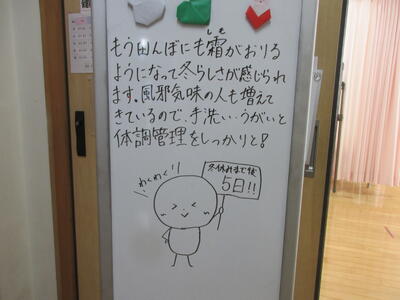 もう田んぼにも霜がおりる
しも
ようになって冬らしさが感じられ
ます。風邪気味の人も増えて
きているので、手洗い・うがいと
体調管理をしっかりと!
わくわく
冬休みまで後
5日!!